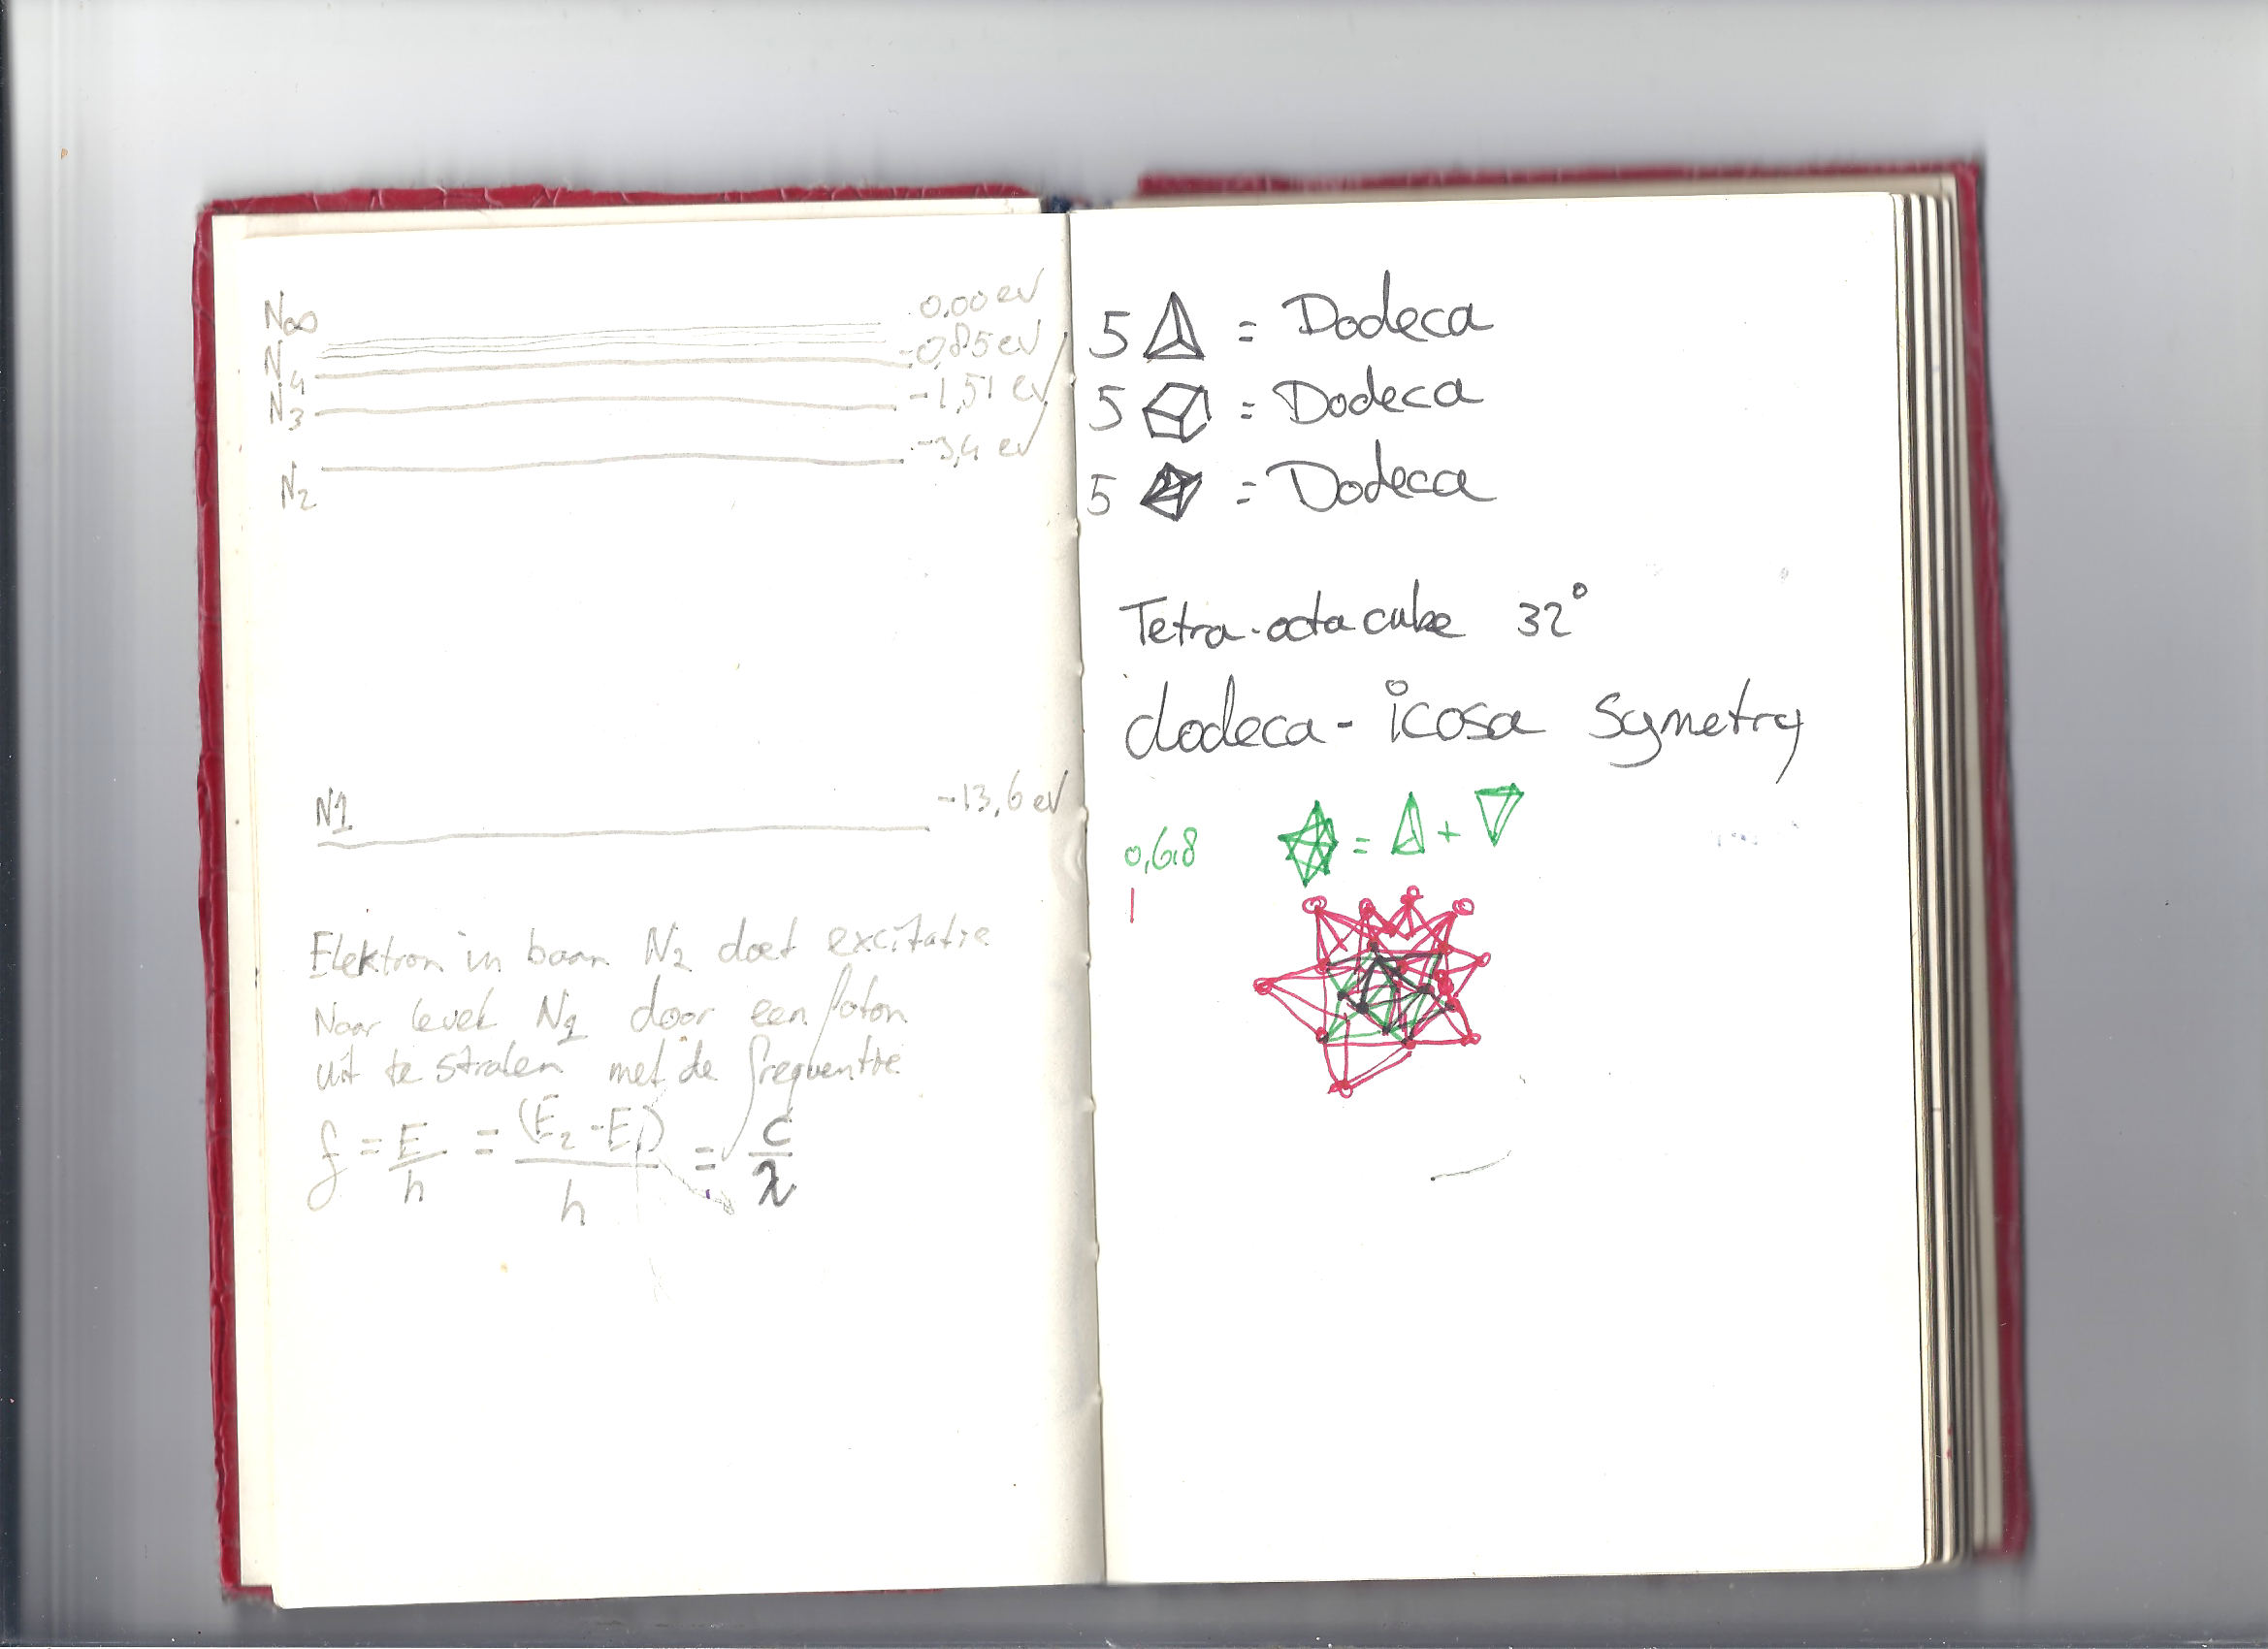 N∞ 0,00 ev
N4 -0,85 ev
N3 -1,51 ev
N2 -3,4 ev
N1 -13,6 ev
Elektron in baan N2 doet excitatie
Naar level N1 door een foton
uit te stralen met de frequentie
f = E/h = (E2 - E1)/h = c/λ
5 = Dodeca
5 = Dodeca
5 = Dodeca
Tetra-octa cube 32°
dodeca - icosa Symetry
0,618 = +
1